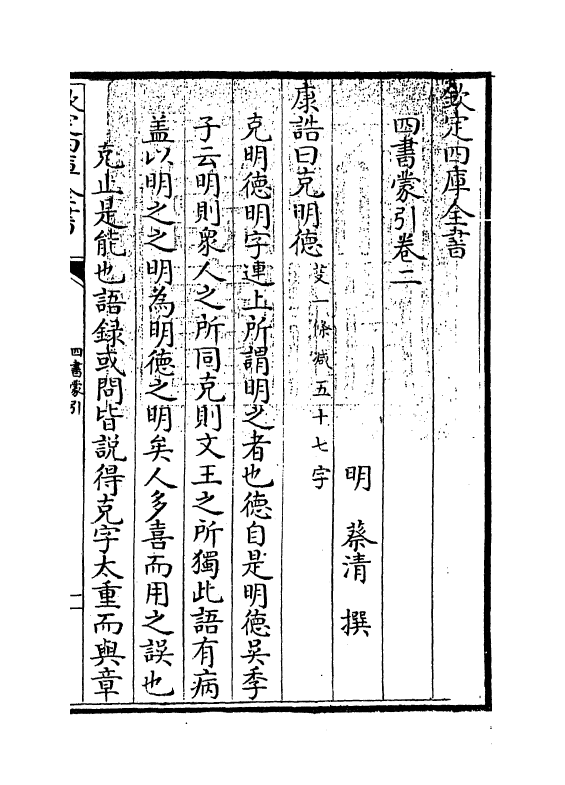 欽定四庫全書
四書蒙引卷二
明 蔡清 撰
康誥曰克明德芟一條減五十七字
克明德明字連上所謂明之者也德自是明德吳季
子云明則衆人之所同克則文王之所獨此語有病
盖以明之之明為明德之明矣人多喜而用之誤也
克止是能也語録或問皆説得克字太重而與章
欽定四庫全書
四書蒙引